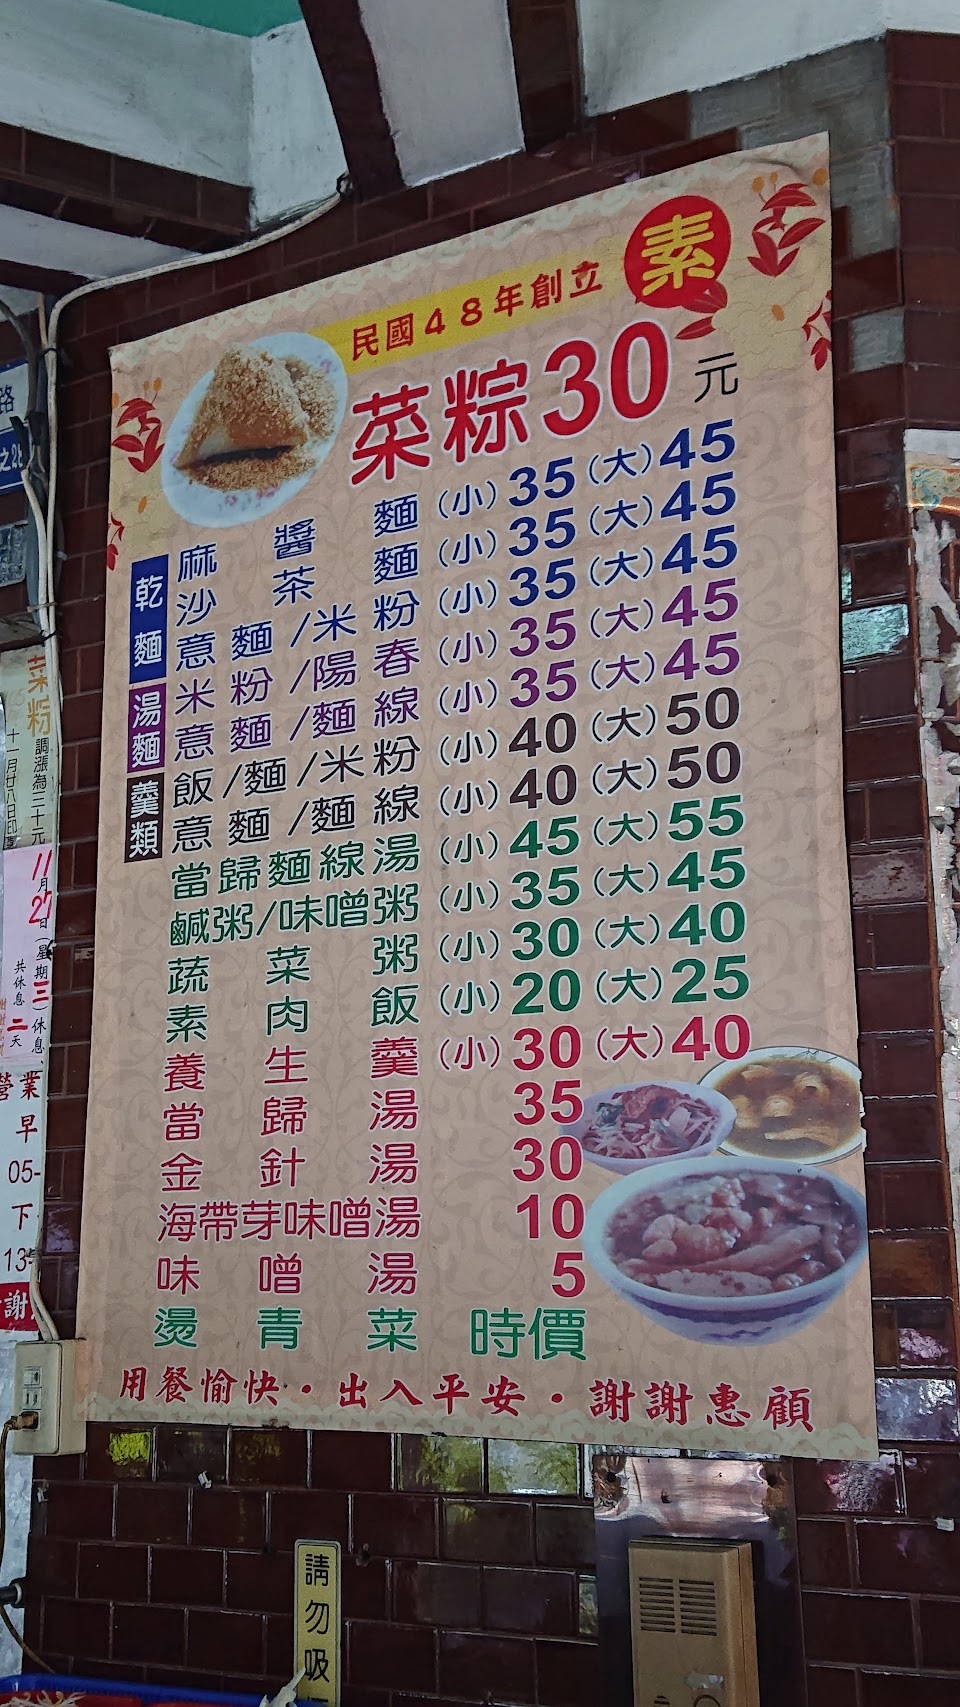 素
民國48年創立
菜粽30元
乾麵
麻醬麵(小)35(大)45
沙茶麵(小)35(大)45
意麵/米粉(小)35(大)45
湯麵
米粉/陽春(小)35(大)45
意麵/麵線(小)35(大)45
羹類
飯/麵/米粉(小)40(大)50
意麵/麵線(小)40(大)50
當歸麵線湯(小)45(大)55
鹹粥/味噌粥(小)35(大)45
蔬菜粥(小)30(大)40
素肉飯(小)20(大)25
養生羹(小)30(大)40
當歸湯35
金針湯30
海帶芽味噌湯10
味噌湯5
燙青菜 時價
用餐愉快・出入平安・謝謝惠顧
路
菜粽
調漲為三十元
十一月廿八日
11月27日(星期三)休息
共休息二天
營業
早
05-
下
13
謝
請勿吸